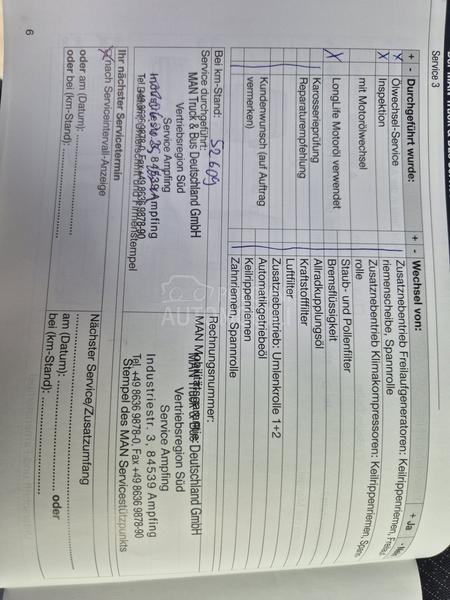 Service 3
+ - Durchgeführt wurde:
x Ölwechsel-Service
x Inspektion
mit Motorölwechsel
x LongLife Motoröl verwendet
Karosserieprüfung
Reparaturempfehlung
Kundenwunsch (auf Auftrag
vermerken)
+ - Wechsel von: + Ja
Zusatznebentrieb Freilaufgeneratoren: Keilrippenriemen,
riemenscheibe, Spannrolle
Zusatznebentrieb Klimakompressoren: Keilrippenriemen,
rolle
Staub- und Pollenfilter
Bremsflüssigkeit
Allradkupplungsöl
Kraftstofffilter
Luftfilter
Zusatznebentrieb: Umlenkrolle 1+2
Automatikgetriebeöl
Keilrippenriemen
Zahnriemen, Spannrolle
Bei km-Stand: 52609
Service durchgeführt:
MAN Truck & Bus Deutschland GmbH
Vertriebsregion Süd
Service Ampfing
Industriestr. 3, 84539 Ampfing
Tel. +49 8636 9878-0, Fax +49 8636 9878-90
Rechnungsnummer:
MAN Truck & Bus Deutschland GmbH
Vertriebsregion Süd
Service Ampfing
Industriestr. 3, 84539 Ampfing
Tel. +49 8636 9878-0, Fax +49 8636 9878-90
Stempel des MAN Servicestützpunkts
Ihr nächster Servicetermin
x nach Serviceintervall-Anzeige
oder am (Datum):
oder bei (km-Stand):
Nächster Service/Zusatzumfang
am (Datum): oder
bei (km-Stand):
6